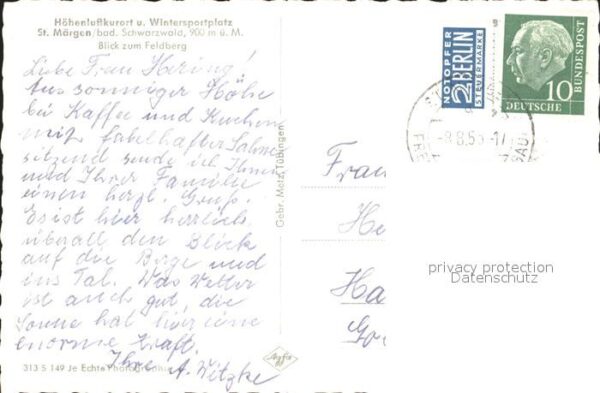 Höhenluftkurort u. Wintersportplatz
St. Märgen/bad. Schwarzwald, 900 m ü. M.
Blick zum Feldberg
Liebe Frau Hering!
Aus sonniger Höhe
bei Kaffee und Kuchen
mit fabelhafter Sahne
sitzend sende ich Ihnen
und Ihrer Familie
einen herzl. Gruß.
Es ist hier herrlich
überall den Blick
auf die Berge und
ins Tal. Das Wetter
ist auch gut, die
Sonne hat hier eine
enorme Kraft.
Ihre A. Witzke
313 S 149 Je Echte Photographie
Agfa
Gebr. Metz, Tübingen
NOTOPFER
2 BERLIN
STEUERMARKE
DEUTSCHE
BUNDESPOST
10
-8.8.55-17
Frau
He
Ha
privacy protection
Datenschutz